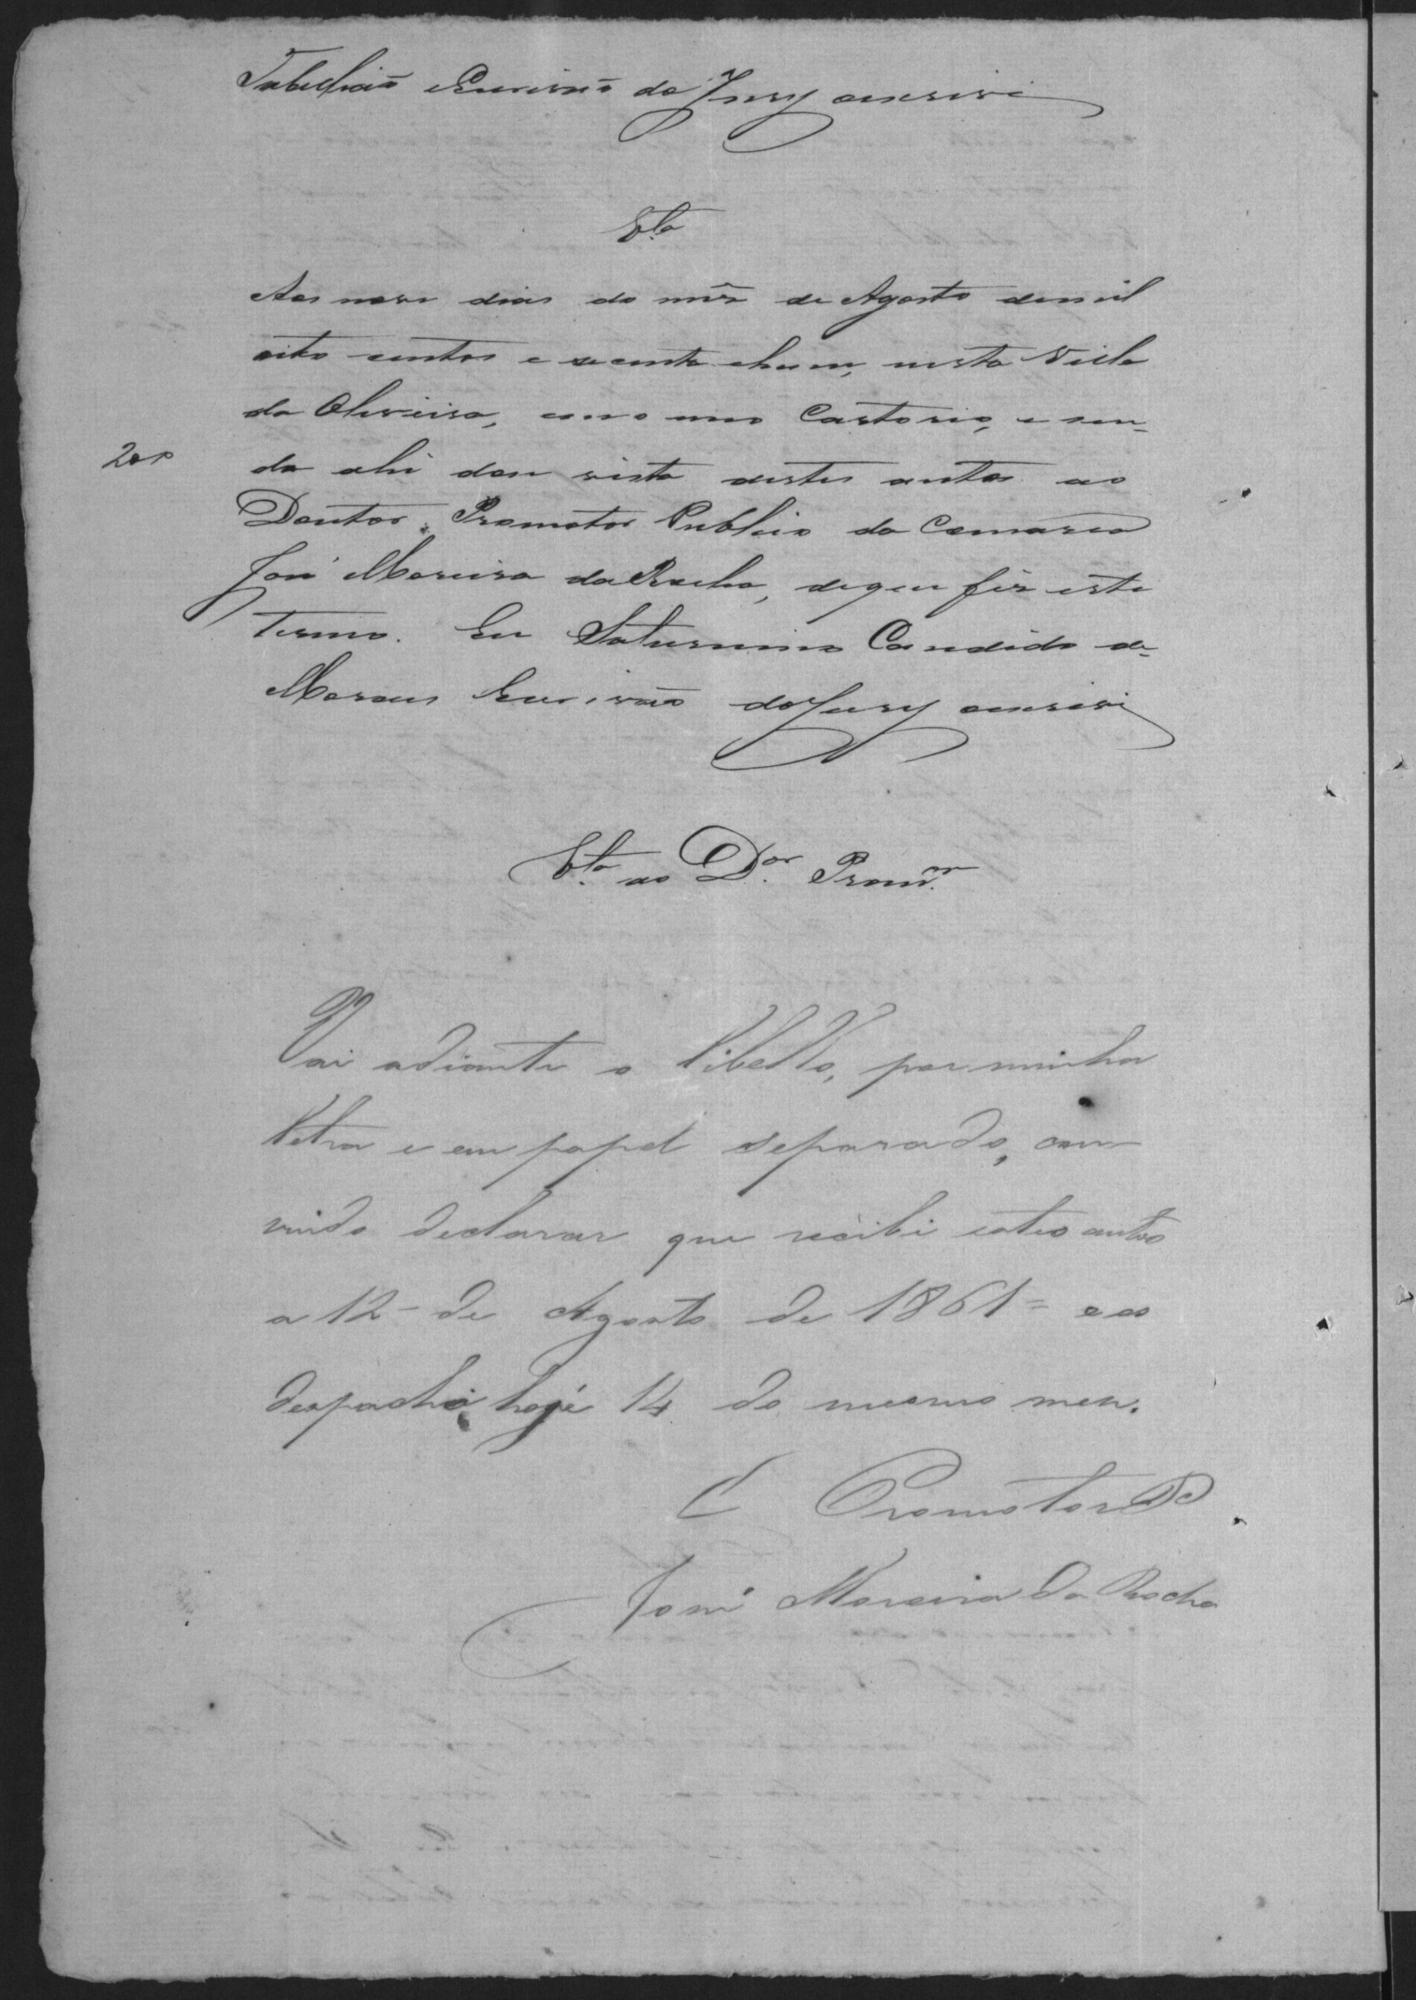 Tabelliaõ eEscrivaõ do Jury oescrivi
V.ta
Aos nove dias do mês de Agosto demil
oito centos e secenta ehum, nesta Villa
da Oliveira, em o meo Cartorio, e sen-
200
do ahi dou vista destes autos ao
Doutor Promotor Publico da Comarca
José Moreira daRocha, deque fiz este
termo. Eu Saturnino Candido de
Moraes Escrivaõ doJury oescrivi
V.ta ao D.or Prom.or
Vai adiante o libello, por minha
letra e em papel separado, cum-
prindo declarar que recibi estes autos
a 12 de Agosto de 1861 = e os
despachei hoje 14 do mesmo mez.
O Promotor P.co
José Moreira da Rocha